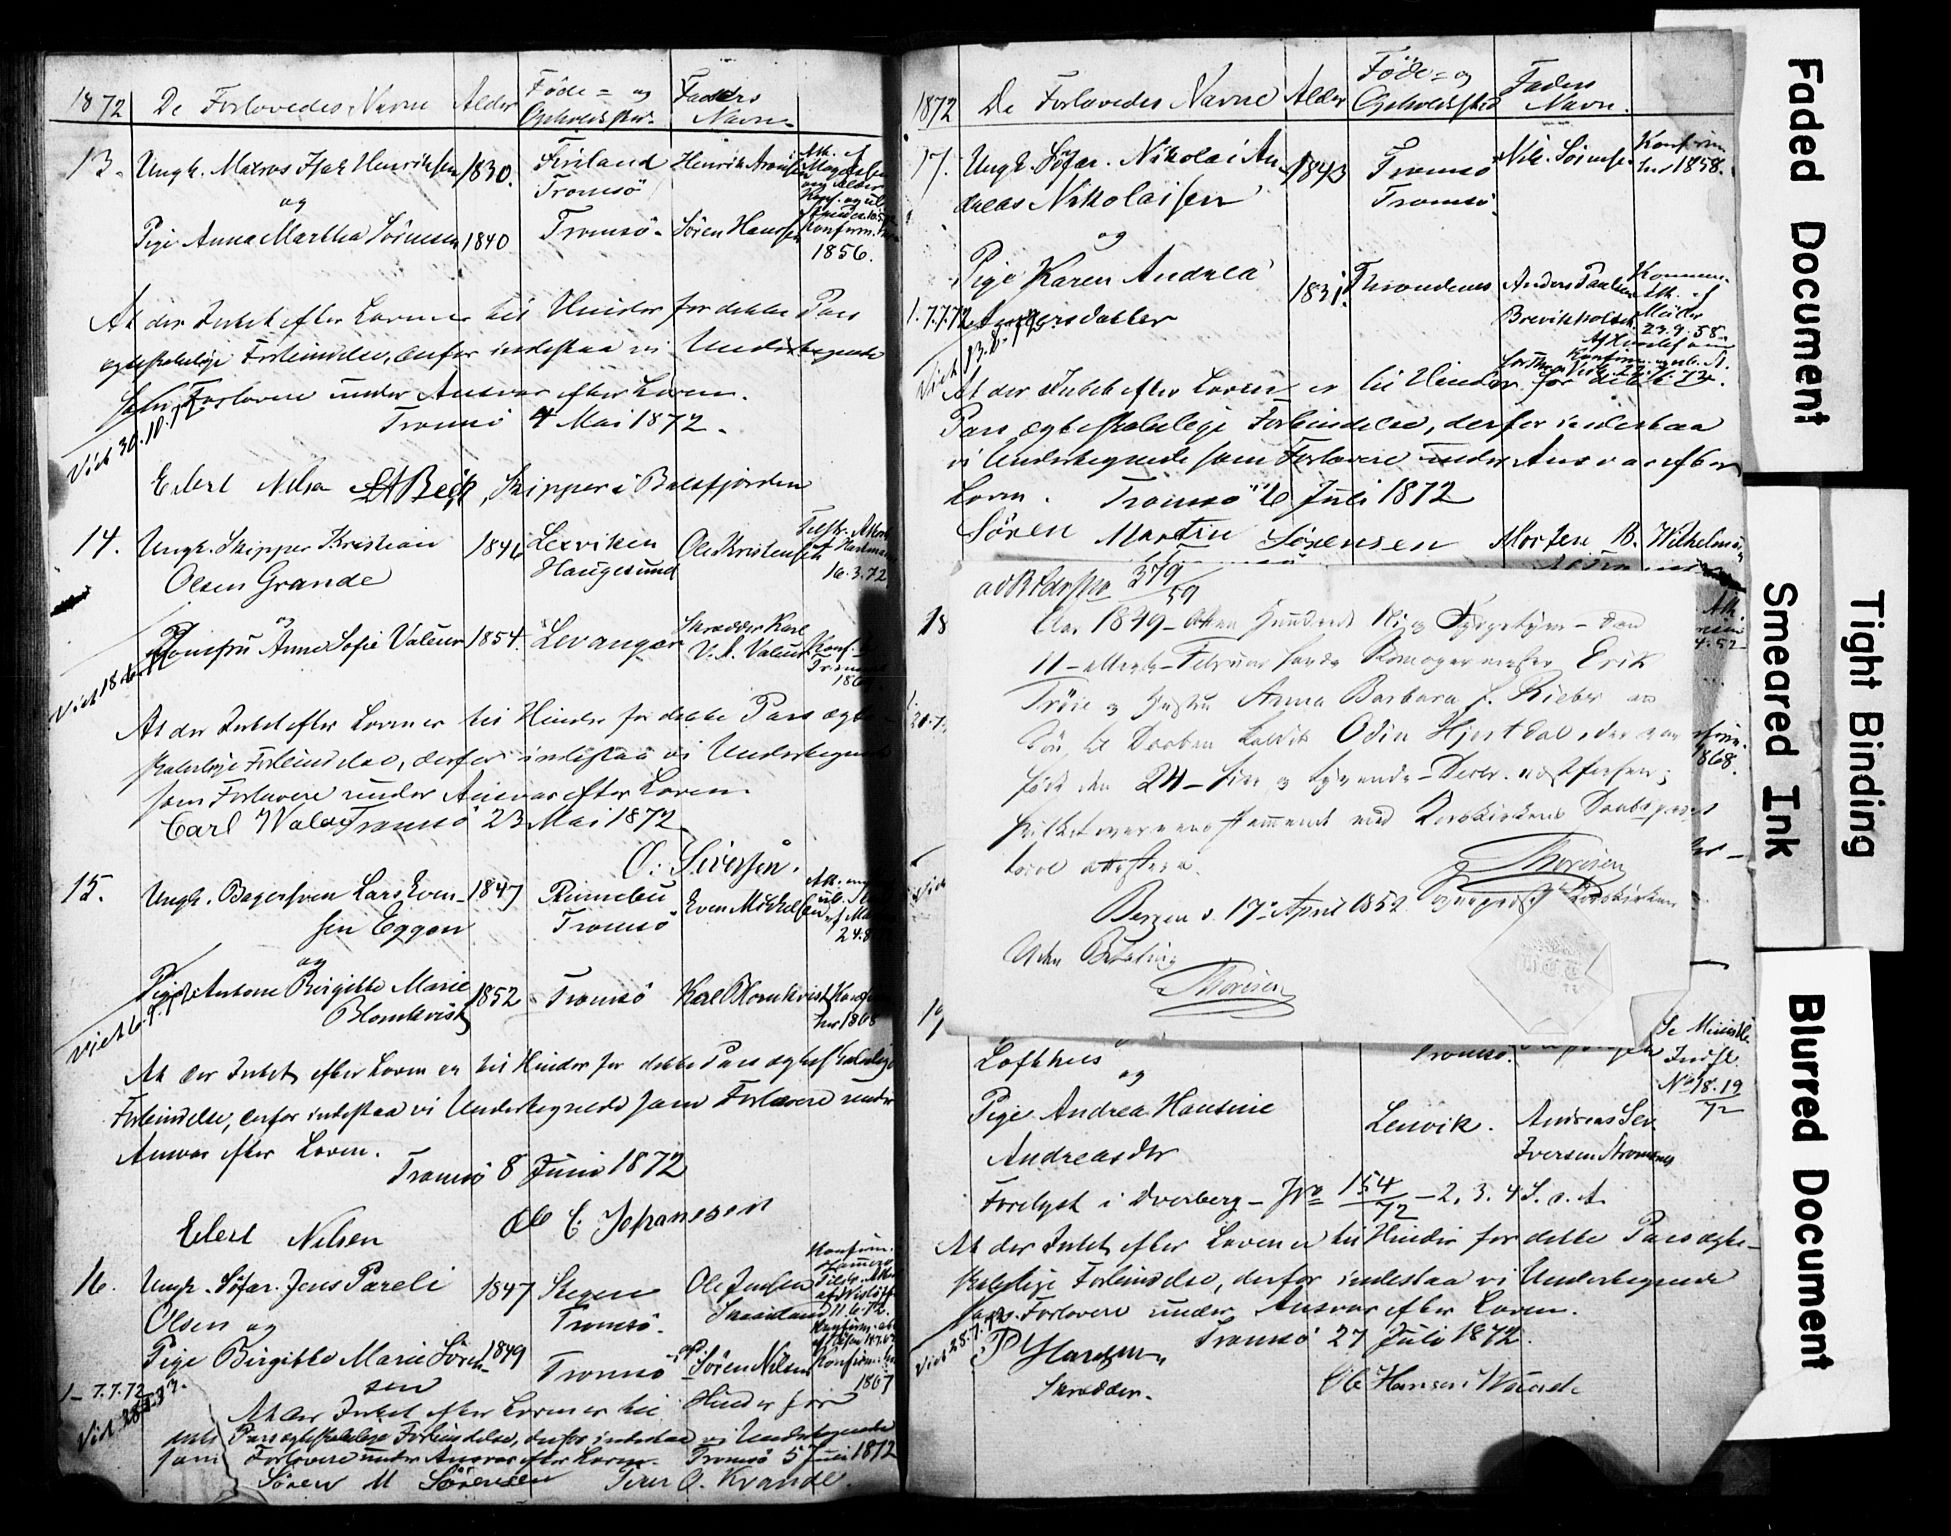 1872 De Forlovedes Navne Alder Føde= og Faders
Opholdssted. Navn.
13. Ungk. Matros Isak Henriksen 1830. Finland Henrik Aronsen
og Tromsö
Pige Anna Martha Sörensen 1840 Tromsö. Sören Hansen Konfirm.
1856.
At der Intet efter Loven er til Hinder for dette Pars
ægteskabelige Forbindelse, derfor indestaa vi Undertegnede
som Forlovere under Ansvar efter Loven.
Tromsö 4 Mai 1872.
Viet 30.10.72
Edert Nelsen Skipper i Balsfjorden
14. Ungk. Skipper Kristian 1846 Lexviken Ole Kristensen
Olsen Grande Haugesund 16.3.72
og
Jomfru Anne Sofie Valeur 1854. Levanger Skrædder Karl
V. A. Valeur Konf.
At der Intet efter Loven er til Hinder for dette Pars ægte-
skabelige Forbindelse, derfor indestaa vi Undertegnede
som Forlovere under Ansvar efter Loven.
Carl Valeur Tromsö 23 Mai 1872
O. Sivertsen.
15. Ungk. Bagersvend Lars Even- 1847 Rennebu Even Mikkelsen
sen Eggan Tromsö
og
Pige Antone Birgitte Marie 1852 Tromsö Karl Blomkvist Konf.
Blomkvist her 1868
At der Intet efter Loven er til Hinder for dette Pars ægteskabelige
Forbindelse, derfor indestaa vi Undertegnede som Forlovere under
Ansvar efter Loven.
Tromsö 8 Juni 1872
Edert Nilsen Ole C. Johannesen
16. Ungk. Söfar. Jens Pareli 1847 Stegen Ole Jensen
Olsen og Tromsö.
Pige Birgitte Marie Sören- 1849 Tromsö Sören Nilsen Konfirm. her
sen 1867
1- 7.7.72
At der Intet efter Loven er til Hinder for
dette Pars ægteskabelige Forbindelse, derfor indestaa vi Undertegnede
som Forlovere under Ansvar efter Loven. Tromsö 5 Juli 1872
Sören M Sörensen Peter O. Kvande.
1872 De Forlovedes Navne Alder Føde= og Faders
Opholdssted Navn.
17. Ungk. Söfar. Nikolai An- 1843 Tromsö Nik. Sörensen Konfirm.
dreas Nikolaisen Tromsö. her 1858.
og
Pige Karen Andrea 1831. Throndenes Anders Paulsen
1.7.7.72 Andersdatter
Viet 13.8.72
At der Intet efter Loven er til Hinder for dette
Pars ægteskabelige Forbindelse, derfor indestaa
vi Undertegnede som Forlovere under Ansvar efter
Loven. Tromsö 6 Juli 1872
Sören Martin Sörensen Morten B. Wilhelmsen
379
59
18 Aar 1849 - Atten Hundrede Ni og Fyrgetyve - den
11 - ellevte - Februar havde Skomagermester Erik
Tröie og Hustru Anna Barbara f. Rieber en
Sön til Daaben kaldet Odin Hjortdal, der var
född den 24 - fire og tyvende - Decbr. næstforhen;
hvilket overeensstemmende med Korskirkens Daabsprotocol
herved attesteres.
Thoresen
Bergen d. 17. April 1852. Sognepræst Korskirken
Uden Betaling
Thoresen
19
Lofthus Tromsö.
og No 18.19
72
Pige Andrea Hansine Lenvik. Andreas
Andreasdtr Iversen
Forelyst i Dverberg - No 154
72 - 2. 3. 4 S. e. T.
At der Intet efter Loven er til Hinder for dette Pars ægte-
skabelige Forbindelse, derfor indestaa vi Undertegnede
som Forlovere under Ansvar efter Loven.
Viet 28.7.72 Tromsö 27 Juli 1872.
P Hansen
Skrædder. Ole Hansen
Faded Document
Smeared Ink
Tight Binding
Blurred Document